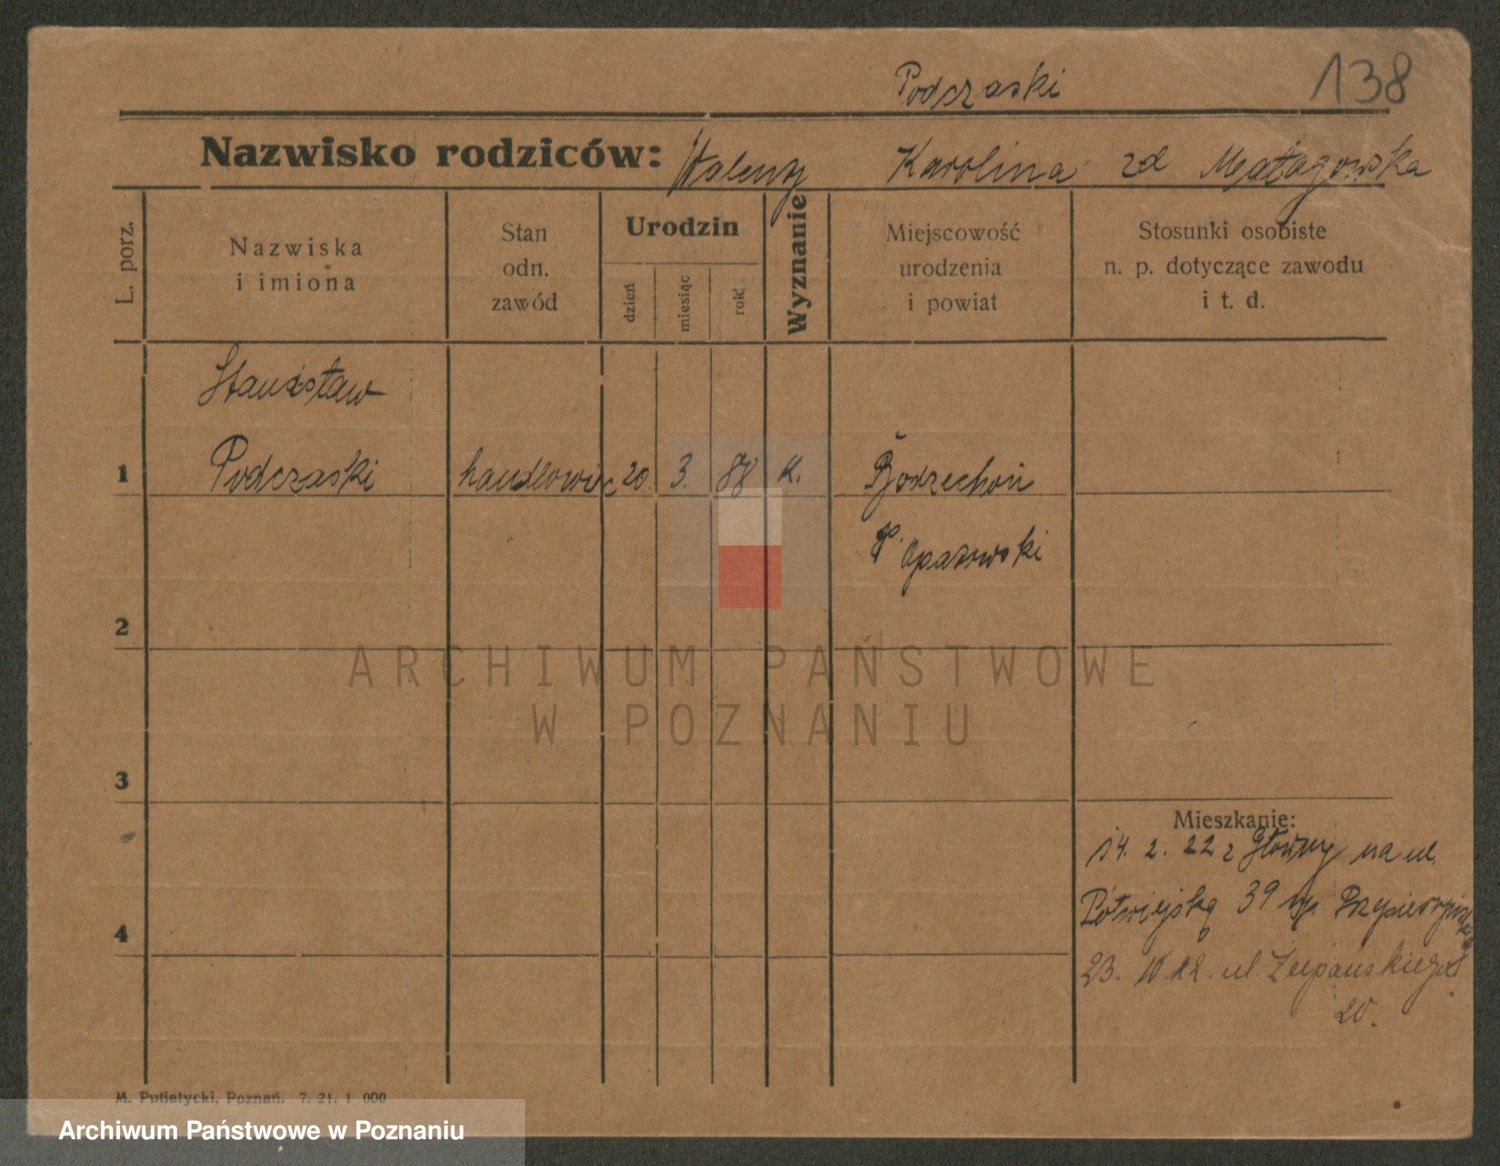 Podczaski 138
Nazwisko rodziców: Walenty Karolina zd Małagowska
L. porz.
Nazwiska
i imiona
Stan
odn.
zawód
Urodzin
dzień
miesiąc
rok
Wyznanie
Miejscowość
urodzenia
i powiat
Stosunki osobiste
n. p. dotyczące zawodu
i t. d.
Stanisław
1 Podczaski handlowiec 20. 3. 88 K. Bodzechów
P. Opatowski
2
ARCHIWUM PAŃSTWOWE
W POZNANIU
3
Mieszkanie:
14. 2. 22 z Główny na ul.
Półwiejską 39 
4
23. ul
20.
M. Putiatycki, Poznań. 7. 21. 1 000
Archiwum Państwowe w Poznaniu